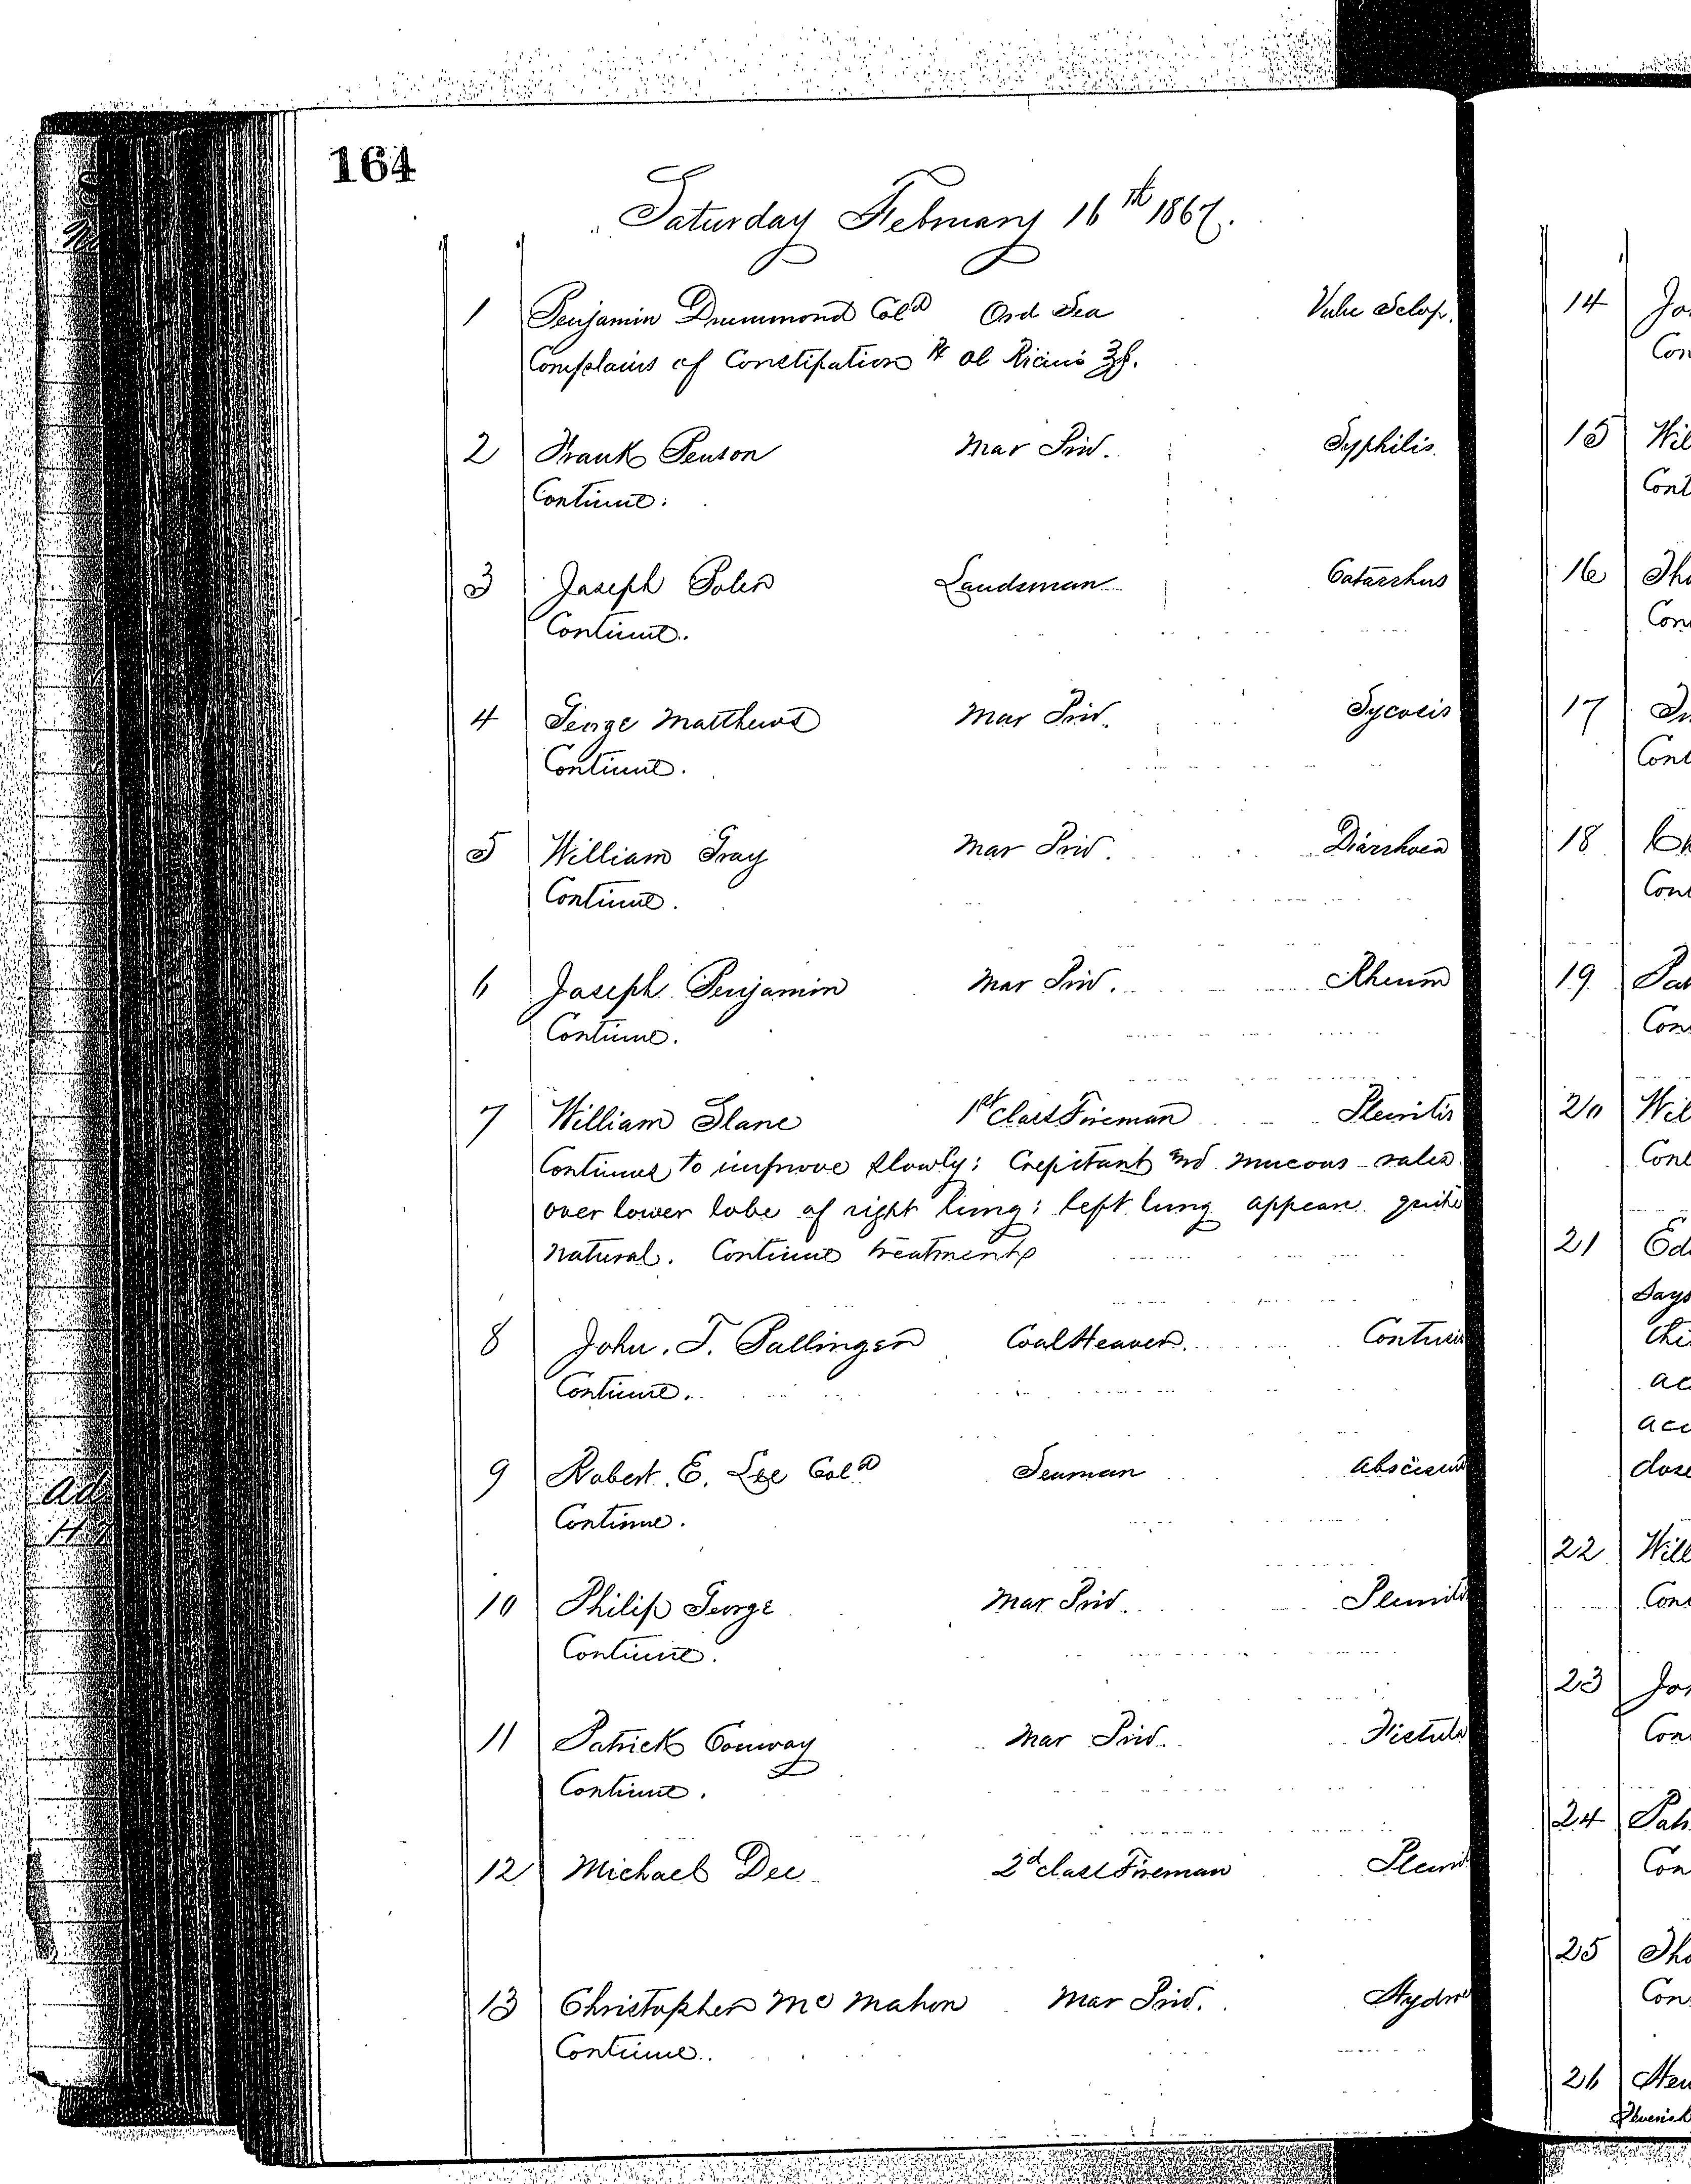 164
Saturday February 16th 1867.
1 Benjamin Drummond Cold Ord Sea Vuln Sclop.
Complains of Constipation ℞ Ol Ricini ℥j.
2 Frank Benson Mar Priv. Syphilis.
Continue.
3 Joseph Boler Landsman Catarrhus
Continue.
4 George Matthews Mar Priv. Sycosis
Continue.
5 William Gray Mar Priv. Diarrhoea
Continue.
6 Joseph Benjamin Mar Priv. Rheum
Continue.
7 William Slane 1st Class Fireman Pleuritis
Continues to improve slowly; Crepitant and mucous rales
over lower lobe of right lung; left lung appears quite
natural. Continue treatment
8 John. T. Ballinger Coal Heaver. Contusi
Continue.
9 Robert. E. Lee Cold Seaman Abscessus
Continue.
10 Philip George Mar Priv. Pleuritis
Continue.
11 Patrick Conway Mar Priv. Fistula
Continue.
12 Michael Dee 2d Class Fireman Pleuri
13 Christopher Mc Mahon Mar Priv. Hydro
Continue.
14 Jo
Con
15 Wil
Cont
16 Tho
Con
17
Cont
18 Ch
Cont
19
Con
20 Wil
Cont
21 Ed
Says
chi
ac
acc
dose
22 Will
Con
23 Jo
Con
24 Pat
Con
25 Tho
Con
26 Hen
Feverish